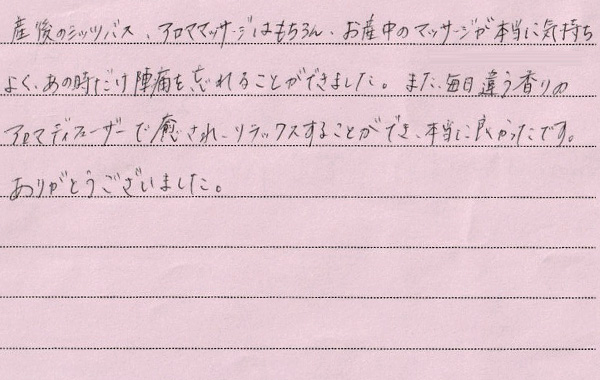 産後のシッツバス、アロママッサージはもちろん、お産中のマッサージが本当に気持ち
よく、あの時だけ陣痛を忘れることができました。また、毎日違う香りの
アロマディフューザーで癒され、リラックスすることができ、本当に良かったです。
ありがとうございました。